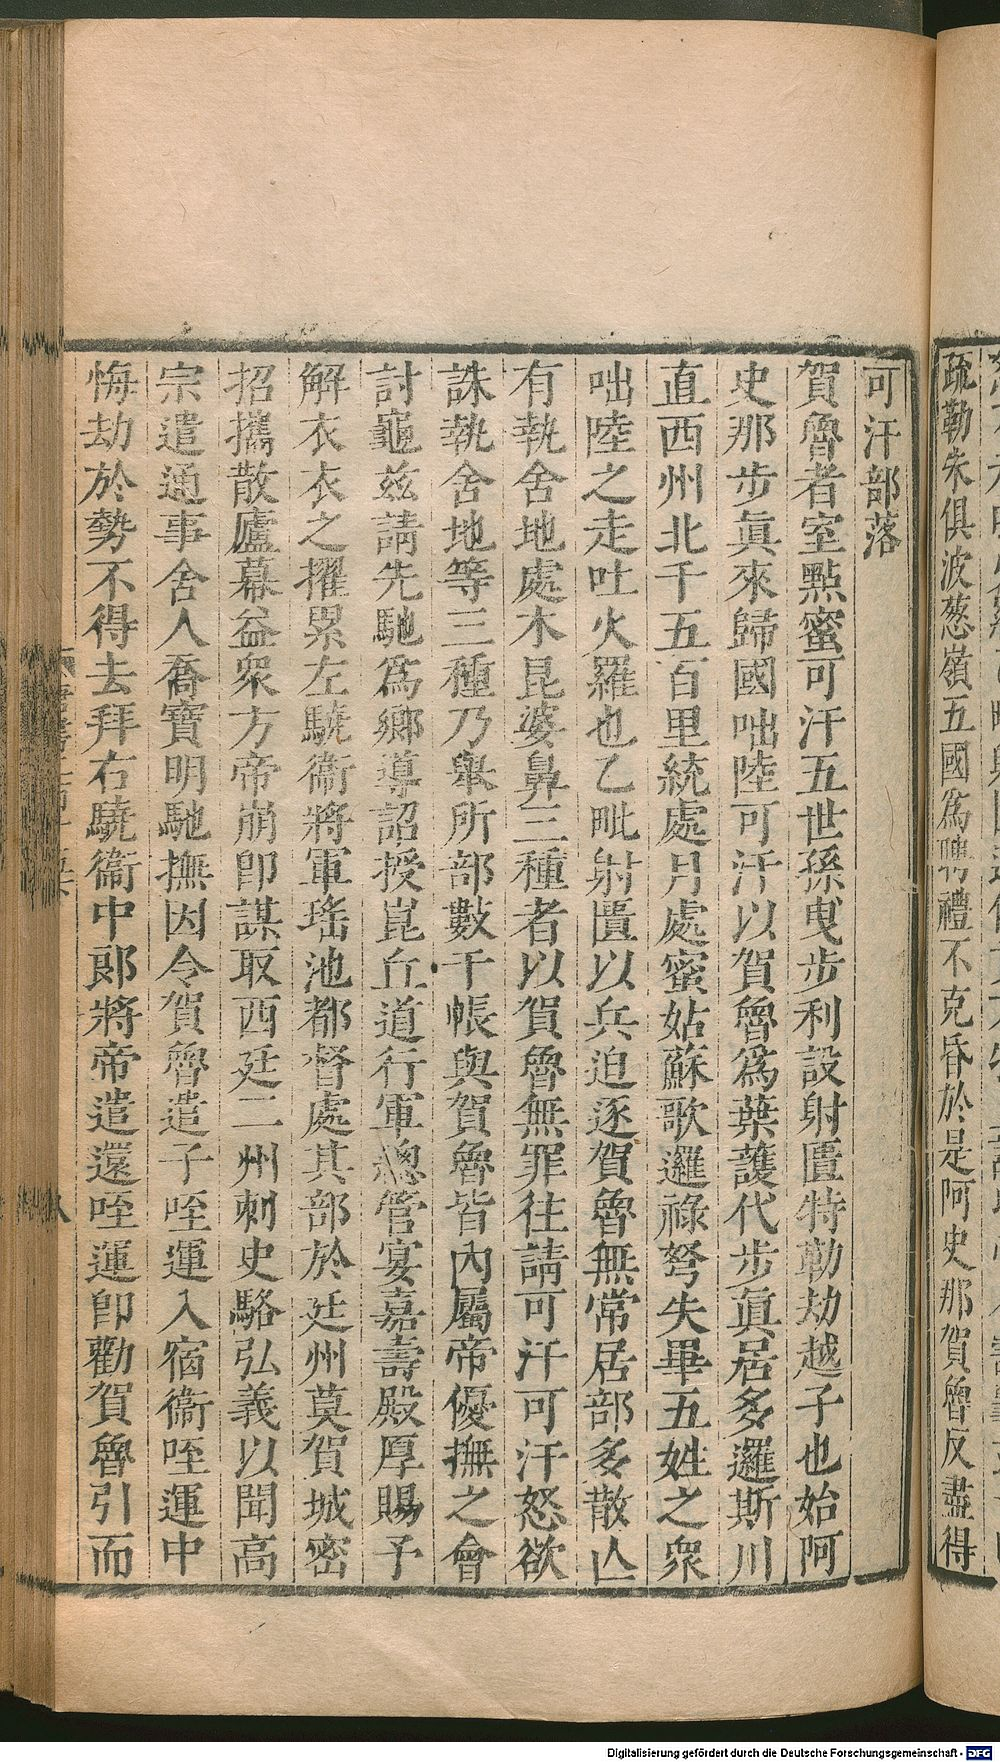 疏勒朱俱波葱嶺五國爲聘禮不克昏於是阿史那賀魯反盡得
可汗部落
賀魯者室點蜜可汗五世孫曳步利設射匱特勒劫越子也始阿
史那步眞來歸國咄陸可汗以賀魯爲葉護代步眞居多邏斯川
直西州北千五百里統處月處蜜姑蘇歌邏祿弩失畢五姓之衆
咄陸之走吐火羅也乙毗射匱以兵迫逐賀魯無常居部多散亾
有執舍地處木昆婆鼻三種者以賀魯無罪往請可汗可汗怒欲
誅執舍地等三種乃舉所部數千帳與賀魯皆內屬帝優撫之會
討龜兹請先馳爲鄉導詔授崑丘道行軍總管宴嘉壽殿厚賜予
解衣衣之擢累左驍衞將軍瑤池都督處其部於廷州莫賀城密
招攜散廬幕益衆方帝崩卽謀取西廷二州刺史駱弘義以聞高
宗遣通事舍人喬寶明馳撫因令賀魯遣子咥運入宿衞咥運中
悔劫於勢不得去拜右驍衞中郞將帝遣還咥運卽勸賀魯引而
Digitalisierung gefördert durch die Deutsche Forschungsgemeinschaft - DFG